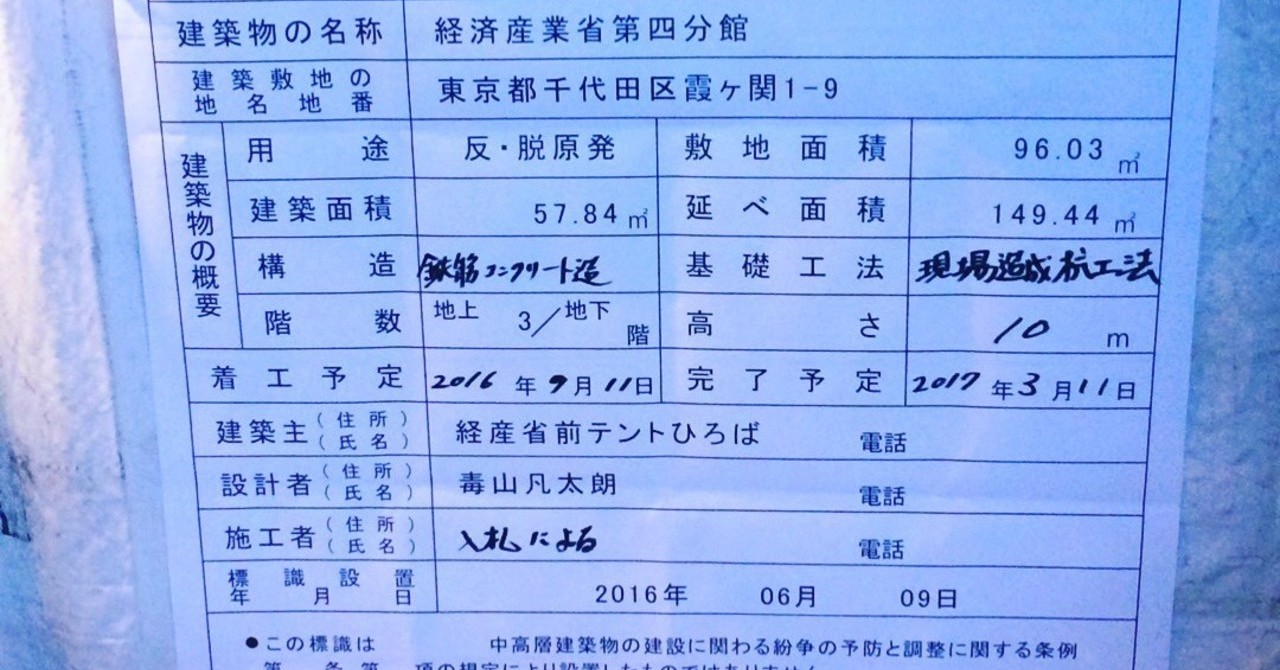 建築物の名称 経済産業省第四分館
建築敷地の
地名地番 東京都千代田区霞ヶ関1-9
建築物の概要
用途 反・脱原発 敷地面積 96.03㎡
建築面積 57.84㎡ 延べ面積 149.44㎡
構造 鉄筋コンクリート造 基礎工法 現場造成杭工法
階数 地上 3/地下 階 高さ 10 m
着工予定 2016年9月11日 完了予定 2017年3月11日
建築主(住所)(氏名) 経産省前テントひろば 電話
設計者(住所)(氏名) 毒山凡太朗 電話
施工者(住所)(氏名) 入札による 電話
標識設置
年月日 2016年 06月 09日
●この標識は 中高層建築物の建設に関わる紛争の予防と調整に関する条例
第 条第 項の規定により設置したものではありません